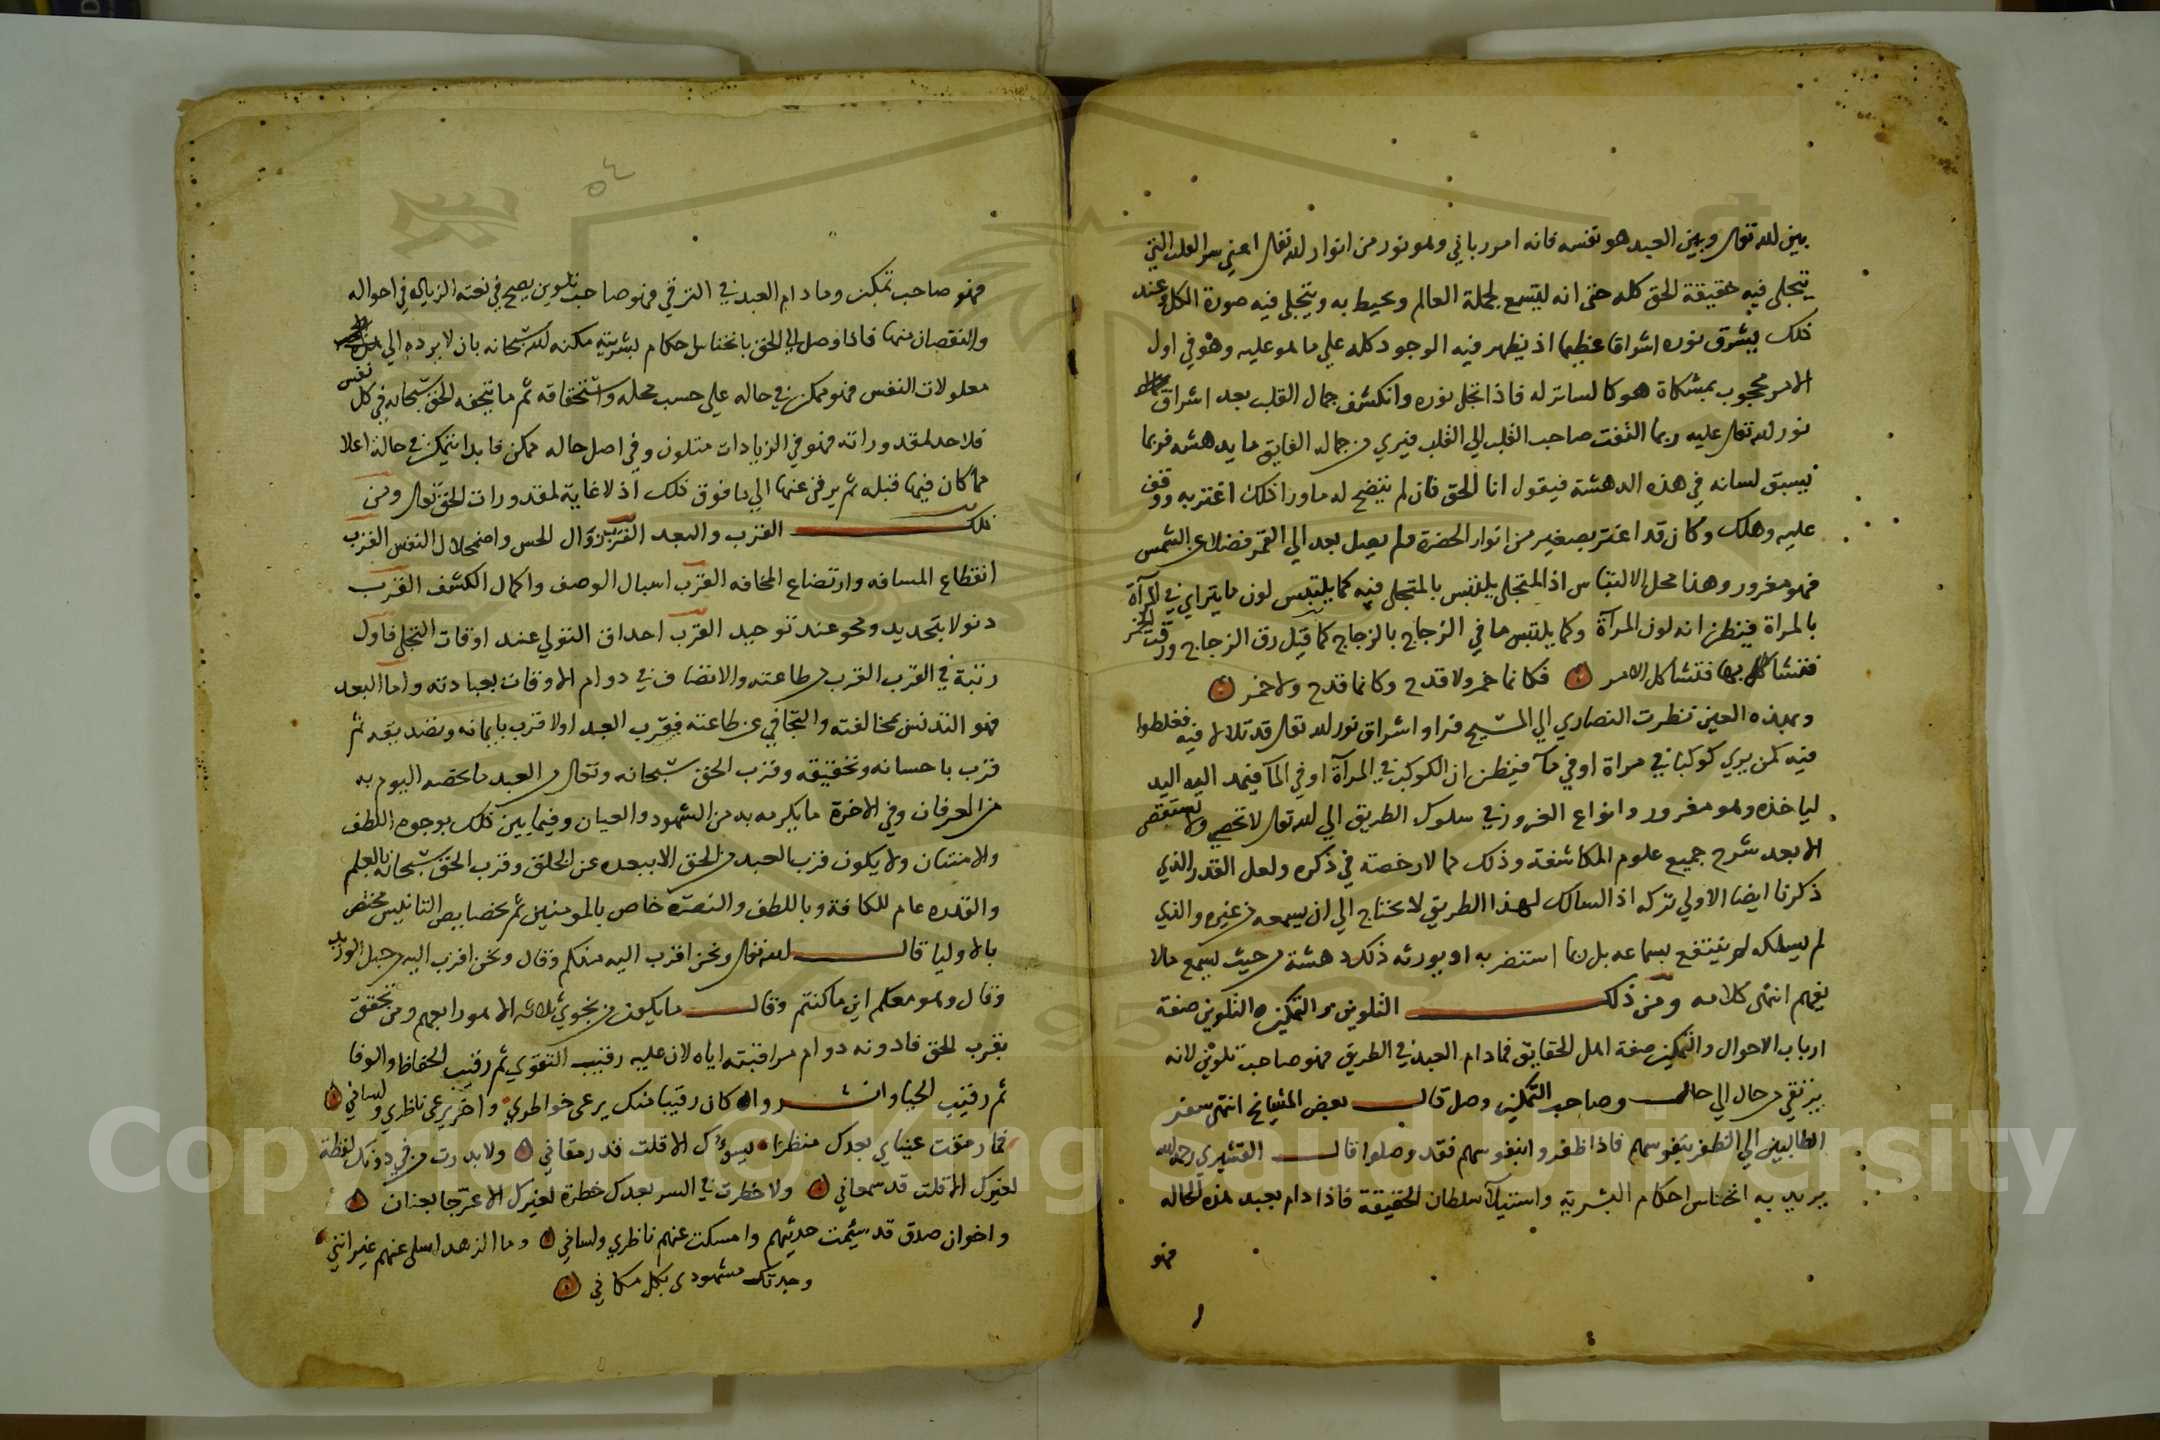 بين الله تعالى وبين العبد هو نفسه فانه امر رباني وهو نور من انوار الله تعالى اعني سر القلب الذي
يتجلى فيه حقيقة الحق كله حتى انه ليتسع لجملة العالم ويحيط به ويتجلى فيه صورة الكل وعند
ذلك يشرق نوره اشراقا عظيما اذ يظهر فيه الوجود كله علي ما هو عليه وهو في اول
الامر محجوب بمشكاة هو كالساتر له فاذا تجلى نوره وانكشف جمال القلب بعد اشراق
نور الله تعالى عليه ربما التفت صاحب القلب الي القلب فيري من جماله الفايق ما يدهشه فربما
يسبق لسانه في هذه الدهشة فيقول انا الحق فان لم يتضح له ما ورا ذلك اغتر به ووقف
عليه وهلك وكان قد اغتر بصغير من انوار الحضرة ولم يصل بعد الي القمر فضلا عن الشمس
فهو مغرور وهذا محل الالتباس اذ المتجلي يلتبس بالمتجلى فيه كما يلتبس لون ما يترااي في المرآة
بالمراة فيظن انه لون المرآة وكما يلتبس ما في الزجاج بالزجاج كما قيل رق الزجاج ورقت الخمر
فتشاكل الامر فكانما خمر ولا قدح وكانما قدح ولا خمر
وبهذه العين نظرت النصاري الي المسيح فراوا اشراق نور الله تعالى قد تلالا فيه فغلطوا
فيه كمن يري كوكبا في مراة او في مآ فيظن ان الكوكب في المرآة او في المآ فيمد اليه اليد
لياخذه وهو مغرور وانواع الغرور في سلوك الطريق الي الله تعالى لا تحصي ولا تستقصى
الا بعد شرح جميع علوم المكاشفة وذلك مما لا رخصة في ذكره ولعل القدر الذي
ذكرنا ايضا الاولي تركه اذ السالك لهذا الطريق لا يحتاج الي ان يسمعه من غيره والذي
لم يسلكه لم ينتفع بسماعه بل ربما استضر به اذ يورثه ذلك دهشة من حيث يسمع ما لا
يفهم انتهى كلامه ومن ذلك التلوين والتمكين التلوين صفة
ارباب الاحوال والتمكين صفة اهل الحقايق فما دام العبد في الطريق فهو صاحب تلوين لانه
يرتقي من حال الي حال وصاحب التمكين وصل قال بعض المشايخ انتهى سفر
الطالبين الي الظفر بنفوسهم فاذا ظفروا بنفوسهم فقد وصلوا قال القشيري رحمه الله
يريد به انخناس احكام البشرية واستيلآ سلطان الحقيقة فاذا دام بعبد هذه الحاله
فهو
٥٤
فهو صاحب تمكين وما دام العبد في الترقي فهو صاحب تلوين يصح في نعته الزيادة في احواله
والنقصان منها فاذا وصل الي الحق بانخناس احكام بشريته مكنه الله سبحانه بان لا يرده الي
معلولات النفس فهو ممكن في حاله علي حسب محله واستحقاقه ثم ما يتحفه الحق سبحانه في كل نفس
فلا حد لمقدوراته فهو في الزيادات متلون وفي اصل حاله ممكن فابدا يتمكن في حالة اعلا
مما كان فيها قبله ثم يرقى عنها الي ما فوق ذلك اذ لا غاية لمقدورات الحق تعالى ومن
ذلك القرب والبعد القرب زوال الحس واضمحلال النفس القرب
انقطاع المسافه وارتفاع المخافه القرب اسبال الوصف واكمال الكشف القرب
دنو لا بتحديد ومحو عند توحيد القرب احداق التولي عند اوقات التجلي فاول
رتبة في القرب القرب من طاعته والاتصاف في دوام الاوقات بعبادته واما البعد
فهو التدنس بمخالفته والتجافي عن طاعته فقرب العبد اولا قرب بايمانه وتصديقه ثم
قرب باحسانه وتحقيقه وقرب الحق سبحانه وتعالى من العبد ما يخصه اليوم به
من العرفان وفي الاخرة ما يكرمه به من الشهود والعيان وفيما بين ذلك بوجوه اللطف
والامتنان ولا يكون قرب العبد من الحق الا ببعده عن الخلق وقرب الحق سبحانه بالعلم
والقدره عام للكافة وباللطف والنصرة خاص بالمومنين ثم بخصايص التانيس مختص
بالاوليا قال الله تعالى ونحن اقرب اليه منكم وقال ونحن اقرب اليه من حبل الوريد
وقال وهو معكم اين ما كنتم وقال ما يكون من نجوي ثلاثه الا هو رابعهم ومن تحقق
بقرب الحق فادونه دوام مراقبته اياه لان عليه رقيب التقوي ثم رقيب الحفاظ والوفا
ثم رقيب الحيا وانشدوا كان رقيبا منك يرعى خواطري واخر يرعى ناظري ولساني
فما رمقت عيناي بعدك منظرا يسوءك الا قلت قد رمقاني ولا بدرت من في دونك لفظة
لغيرك الا قلت قد سمعاني ولا خطرت في السر بعدك خطرة لغيرك الا عرجا بعنان
واخوان صدق قد سئمت حديثهم وامسكت عنهم ناظري ولساني وما الزهد اسلى عنهم غير انني
وجدتك مشهودي بكل مكاني
Copyright © King Saud University
1957